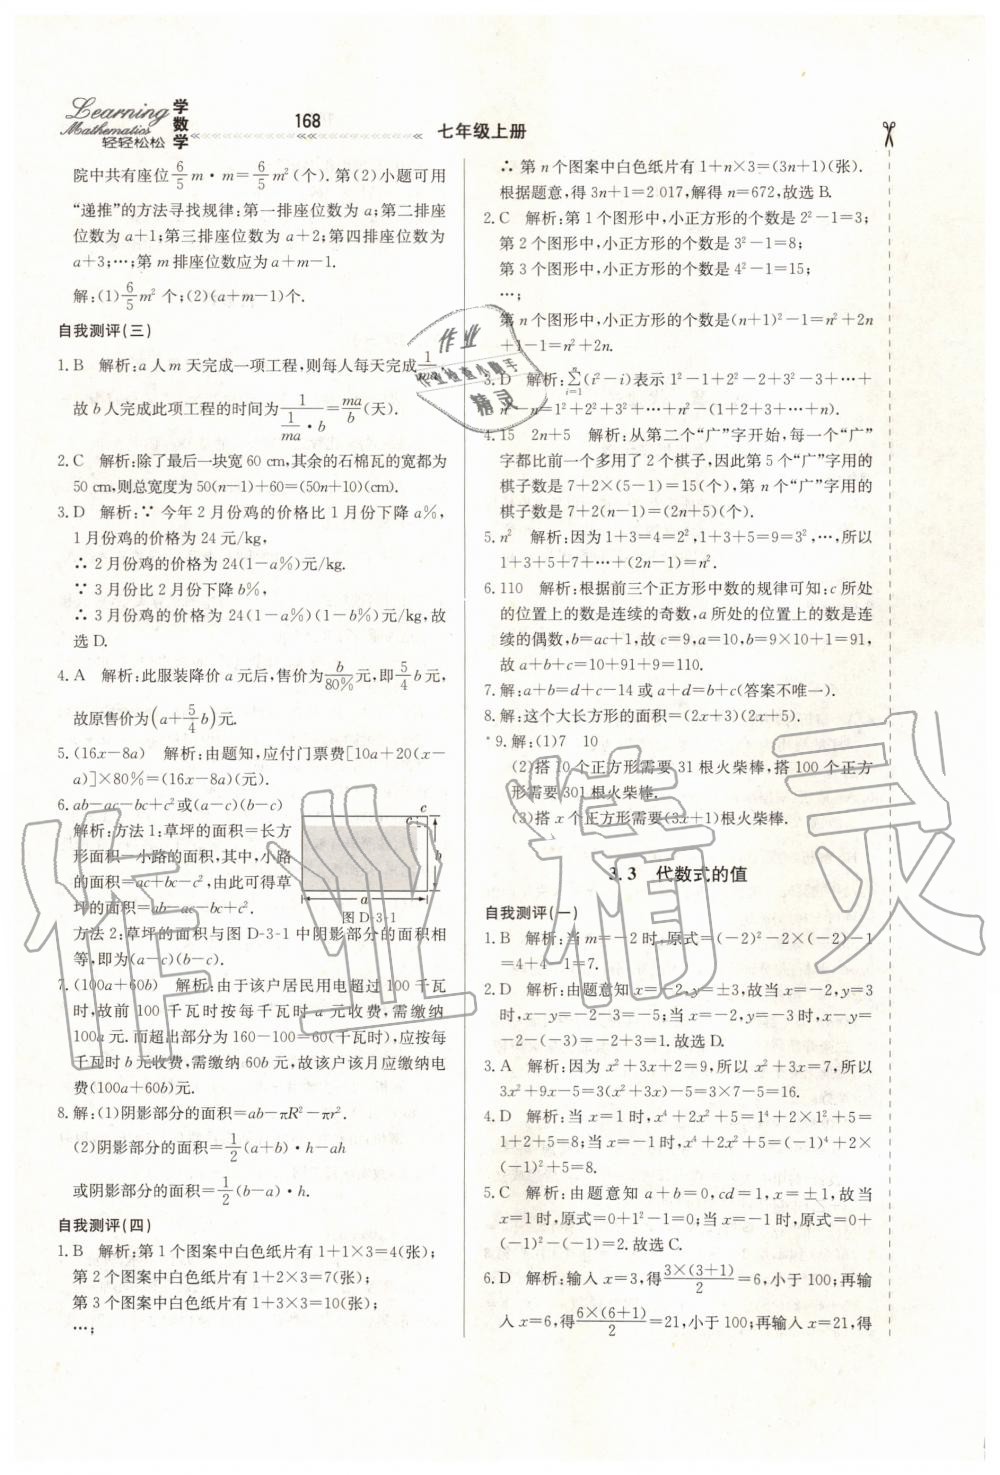 Learning
Mathematics
轻轻松松
学数学
168
七年级上册
院中共有座位6/5 m·m=6/5 m²(个). 第(2)小题可用
“递推”的方法寻找规律:第一排座位数为 a;第二排座
位数为 a+1;第三排座位数为 a+2;第四排座位数为
a+3;…;第 m 排座位数应为 a+m-1.
解:(1)6/5 m² 个;(2)(a+m-1)个.
自我测评(三)
1. B 解析:a 人 m 天完成一项工程,则每人每天完成1/ma
故 b 人完成此项工程的时间为1/(1/ma·b)=ma/b(天).
2. C 解析:除了最后一块宽 60 cm,其余的石棉瓦的宽都为
50 cm,则总宽度为 50(n-1)+60=(50n+10)(cm).
3. D 解析:∵ 今年 2 月份鸡的价格比 1 月份下降 a%,
1 月份鸡的价格为 24 元/kg,
∴ 2 月份鸡的价格为 24(1-a%)元/kg.
∵ 3 月份比 2 月份下降 b%,
∴ 3 月份鸡的价格为 24(1-a%)(1-b%)元/kg,故
选 D.
4. A 解析:此服装降价 a 元后,售价为b/80%元,即5/4 b元,
故原售价为(a+5/4 b)元.
5. (16x-8a) 解析:由题知,应付门票费[10a+20(x-
a)]×80%=(16x-8a)(元).
6. ab-ac-bc+c²或(a-c)(b-c)
解析:方法 1:草坪的面积=长方
形面积-小路的面积,其中,小路
的面积=ac+bc-c²,由此可得草
坪的面积=ab-ac-bc+c².
c
c
b
a
图 D-3-1
方法 2:草坪的面积与图 D-3-1 中阴影部分的面积相
等,即为(a-c)(b-c).
7. (100a+60b) 解析:由于该户居民用电超过 100 千瓦
时,故前 100 千瓦时按每千瓦时 a 元收费,需缴纳
100a 元. 而超出部分为 160-100=60(千瓦时),应按每
千瓦时 b 元收费,需缴纳 60b 元,故该户该月应缴纳电
费(100a+60b)元.
8. 解:(1)阴影部分的面积=ab-πR²-πr².
(2)阴影部分的面积=1/2(a+b)·h-ah
或阴影部分的面积=1/2(b-a)·h.
自我测评(四)
1. B 解析:第 1 个图案中白色纸片有 1+1×3=4(张);
第 2 个图案中白色纸片有 1+2×3=7(张);
第 3 个图案中白色纸片有 1+3×3=10(张);
…;
∴ 第 n 个图案中白色纸片有 1+n×3=(3n+1)(张).
根据题意,得 3n+1=2 017,解得 n=672,故选 B.
2. C 解析:第 1 个图形中,小正方形的个数是 2²-1=3;
第 2 个图形中,小正方形的个数是 3²-1=8;
第 3 个图形中,小正方形的个数是 4²-1=15;
…;
第 n 个图形中,小正方形的个数是(n+1)²-1=n²+2n
+1-1=n²+2n.故选 C.
3. D 解析:∑(i=1→n)(i²-i)表示 1²-1+2²-2+3²-3+…+
n²-n=1²+2²+3²+…+n²-(1+2+3+…+n).
4. 15 2n+5 解析:从第二个“广”字开始,每一个“广”
字都比前一个多用了 2 个棋子,因此第 5 个“广”字用的
棋子数是 7+2×(5-1)=15(个),第 n 个“广”字用的
棋子数是 7+2(n-1)=(2n+5)(个).
5. n² 解析:因为 1+3=4=2²,1+3+5=9=3²,…,所以
1+3+5+7+…+(2n-1)=n².
6. 110 解析:根据前三个正方形中数的规律可知:c 所处
的位置上的数是连续的奇数,a 所处的位置上的数是连
续的偶数,b=ac+1,故 c=9,a=10,b=9×10+1=91,
故 a+b+c=10+91+9=110.
7. 解:a+b=d+c-14 或 a+d=b+c(答案不唯一).
8. 解:这个大长方形的面积=(2x+3)(2x+5).
9. 解:(1)7 10
(2)搭 10 个正方形需要 31 根火柴棒,搭 100 个正方
形需要 301 根火柴棒.
(3)搭 x 个正方形需要(3x+1)根火柴棒.
3.3 代数式的值
自我测评(一)
1. B 解析:当 m=-2 时,原式=(-2)²-2×(-2)-1
=4+4-1=7.
2. D 解析:由题意知 x=-2,y=±3,故当 x=-2,y=3
时,x-y=-2-3=-5;当 x=-2,y=-3 时,x-y=
-2-(-3)=-2+3=1.故选 D.
3. A 解析:因为 x²+3x+2=9,所以 x²+3x=7,所以
3x²+9x-5=3(x²+3x)-5=3×7-5=16.
4. D 解析:当 x=1 时,x⁴+2x²+5=1⁴+2×1²+5=
1+2+5=8;当 x=-1 时,x⁴+2x²+5=(-1)⁴+2×
(-1)²+5=8.
5. C 解析:由题意知 a+b=0,cd=1,x=±1,故当
x=1 时,原式=0+1²-1=0;当 x=-1 时,原式=0+
(-1)²-(-1)=2.故选 C.
6. D 解析:输入 x=3,得3×(3+1)/2=6,小于 100;再输
入 x=6,得6×(6+1)/2=21,小于 100;再输入 x=21,得
作业
作业检查小助手
精灵
作业精灵